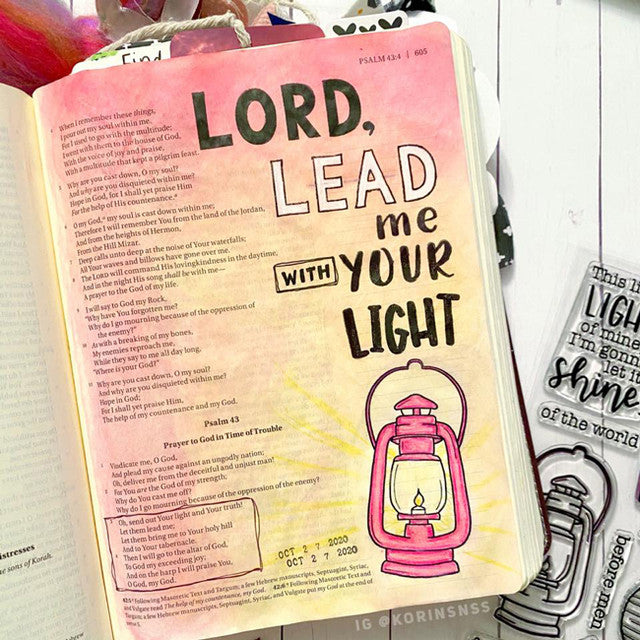 Find
PSALM 43:4 | 605
LORD,
LEAD
me
WITH YOUR
LIGHT
4 When I remember these things,
I pour out my soul within me.
For I used to go with the multitude;
I went with them to the house of God,
With the voice of joy and praise,
With a multitude that kept a pilgrim feast.
5 Why are you cast down, O my soul?
And why are you disquieted within me?
Hope in God, for I shall yet praise Him
For the help of His countenance.
6 O my God, my soul is cast down within me;
Therefore I will remember You from the land of the Jordan,
And from the heights of Hermon,
From the Hill Mizar.
7 Deep calls unto deep at the noise of Your waterfalls;
All Your waves and billows have gone over me.
8 The LORD will command His lovingkindness in the daytime,
And in the night His song shall be with me—
A prayer to the God of my life.
9 I will say to God my Rock,
"Why have You forgotten me?
Why do I go mourning because of the oppression of
the enemy?"
10 As with a breaking of my bones,
My enemies reproach me,
While they say to me all day long,
"Where is your God?"
11 Why are you cast down, O my soul?
And why are you disquieted within me?
Hope in God;
For I shall yet praise Him,
The help of my countenance and my God.
Psalm 43
Prayer to God in Time of Trouble
1 Vindicate me, O God,
And plead my cause against an ungodly nation;
Oh, deliver me from the deceitful and unjust man!
2 For You are the God of my strength;
Why do You cast me off?
Why do I go mourning because of the oppression of the enemy?
3 Oh, send out Your light and Your truth!
Let them lead me;
Let them bring me to Your holy hill
And to Your tabernacle.
4 Then I will go to the altar of God,
To God my exceeding joy;
And on the harp I will praise You,
O God, my God.
OCT 2 7 2020
OCT 2 7 2020
42:5 Following Masoretic Text and Targum; a few Hebrew manuscripts, Septuagint, Syriac,
and Vulgate read The help of my countenance, my God. 42:6 Following Masoretic Text and
Targum; a few Hebrew manuscripts, Septuagint, Syriac, and Vulgate put my God at the end of
IG @KORINSNSS
istresses
he sons of Korah.
This li
LIGH
of mine
I'm gonn
let it
shine
of the world
before men